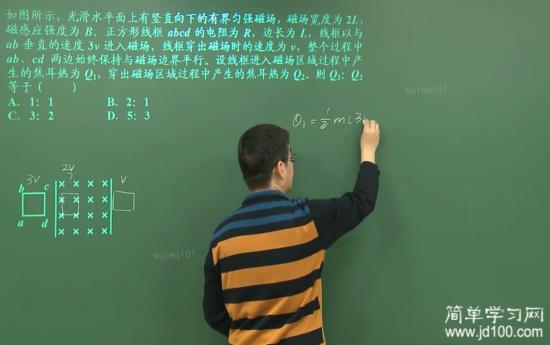 如图所示，光滑水平面上有竖直向下的有界匀强磁场，磁场宽度为 2L、
磁感应强度为 B。正方形线框 abcd 的电阻为 R，边长为 L，线框以与
ab 垂直的速度 3v 进入磁场，线框穿出磁场时的速度为 v，整个过程中
ab、cd 两边始终保持与磁场边界平行。设线框进入磁场区域过程中产
生的焦耳热为 Q1，穿出磁场区域过程中产生的焦耳热为 Q2。则 Q1：Q2
等于（ ）
A．1：1 B．2：1
C．3：2 D．5：3
Q1=½m(3
suleqi01
3v 2v v
b c
a d
suleqi01
简单学习网
www.jd100.com